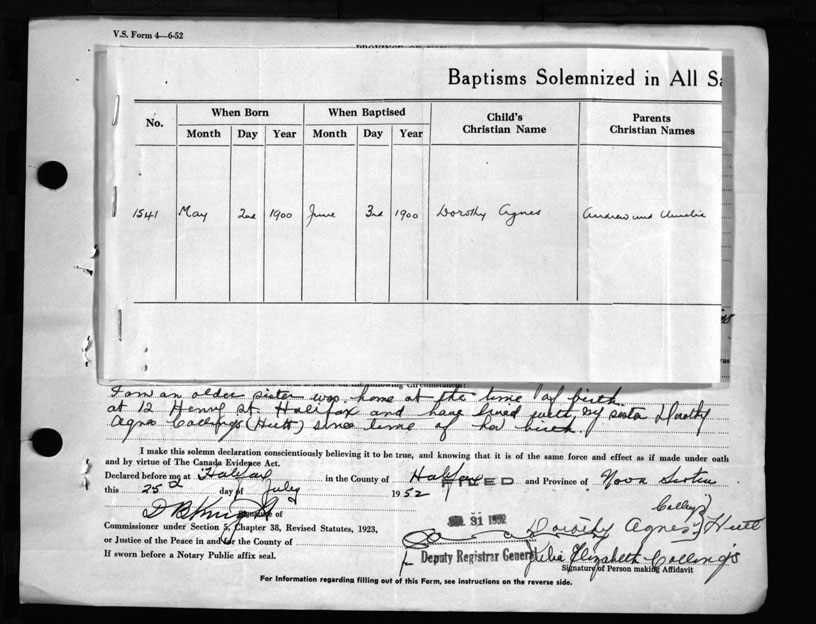 V.S. Form 4—6-52
Baptisms Solemnized in All
No.
When Born
When Baptised
Child's
Christian Name
Parents
Christian Names
Month Day Year Month Day Year
1541 May 2nd 1900 June 3rd 1900 Dorothy Agnes Andrew and Amelia
I am an older sister was home at the time of birth
at 12 Henry St. Halifax and have lived with my sister Dorothy
Agnes Collings (Hutt) since time of her birth.
I make this solemn declaration conscientiously believing it to be true, and knowing that it is of the same force and effect as if made under oath
and by virtue of The Canada Evidence Act.
Declared before me at Halifax in the County of Halifax and Province of Nova Scotia
FILED
this 25 day of July 1952
Commissioner under Section 5, Chapter 38, Revised Statutes, 1923,
or Justice of the Peace in and for the County of
If sworn before a Notary Public affix seal.
31 1952
Deputy Registrar General
Dorothy Agnes Hutt
Elizabeth Collings
Signature of Person making Affidavit
For Information regarding filling out of this Form, see instructions on the reverse side.